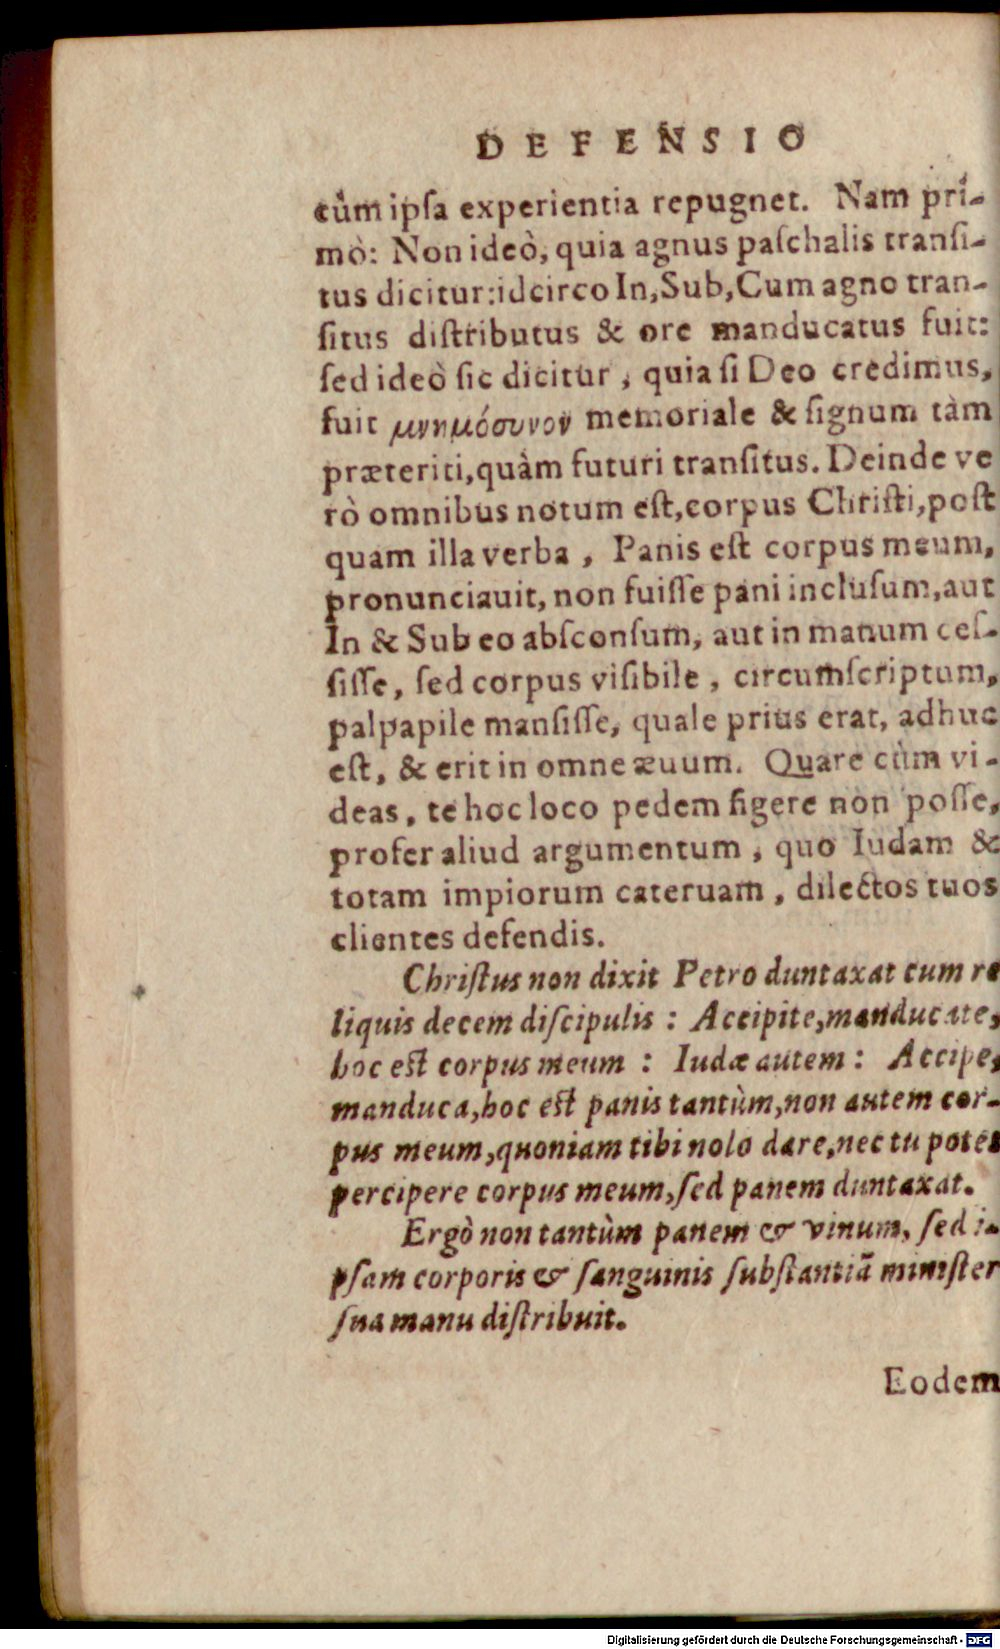 DEFENSIO
cùm ipſa experientia repugnet. Nam pri-
mò: Non ideò, quia agnus paſchalis tranſi-
tus dicitur:idcirco In,Sub,Cum agno tran-
ſitus diſtributus & ore manducatus fuit:
ſed ideò ſic dicitur, quia ſi Deo credimus,
fuit μνημόσυνον memoriale & ſignum tàm
præteriti,quàm futuri tranſitus. Deinde ve
rò omnibus notum eſt,corpus Chriſti,poſt
quam illa verba, Panis eſt corpus meum,
pronunciauit, non fuiſſe pani incluſum,aut
In & Sub eo abſconſum, aut in manum ceſ-
ſiſſe, ſed corpus viſibile, circumſcriptum,
palpapile manſiſſe, quale prius erat, adhuc
eſt, & erit in omne æuum. Quare cùm vi-
deas, te hoc loco pedem figere non poſſe,
profer aliud argumentum, quo Iudam &
totam impiorum cateruam, dilectos tuos
clientes defendis.
Chriſtus non dixit Petro duntaxat cum re
liquis decem diſcipulis : Accipite,manducate,
hoc eſt corpus meum : Iudæ autem : Accipe,
manduca,hoc eſt panis tantùm,non autem cor-
pus meum,quoniam tibi nolo dare,nec tu potes
percipere corpus meum,ſed panem duntaxat.
Ergò non tantùm panem & vinum, ſed i-
pſam corporis & ſanguinis ſubſtantiã miniſter
ſua manu diſtribuit.
Eodem
Digitalisierung gefördert durch die Deutsche Forschungsgemeinschaft - DFG